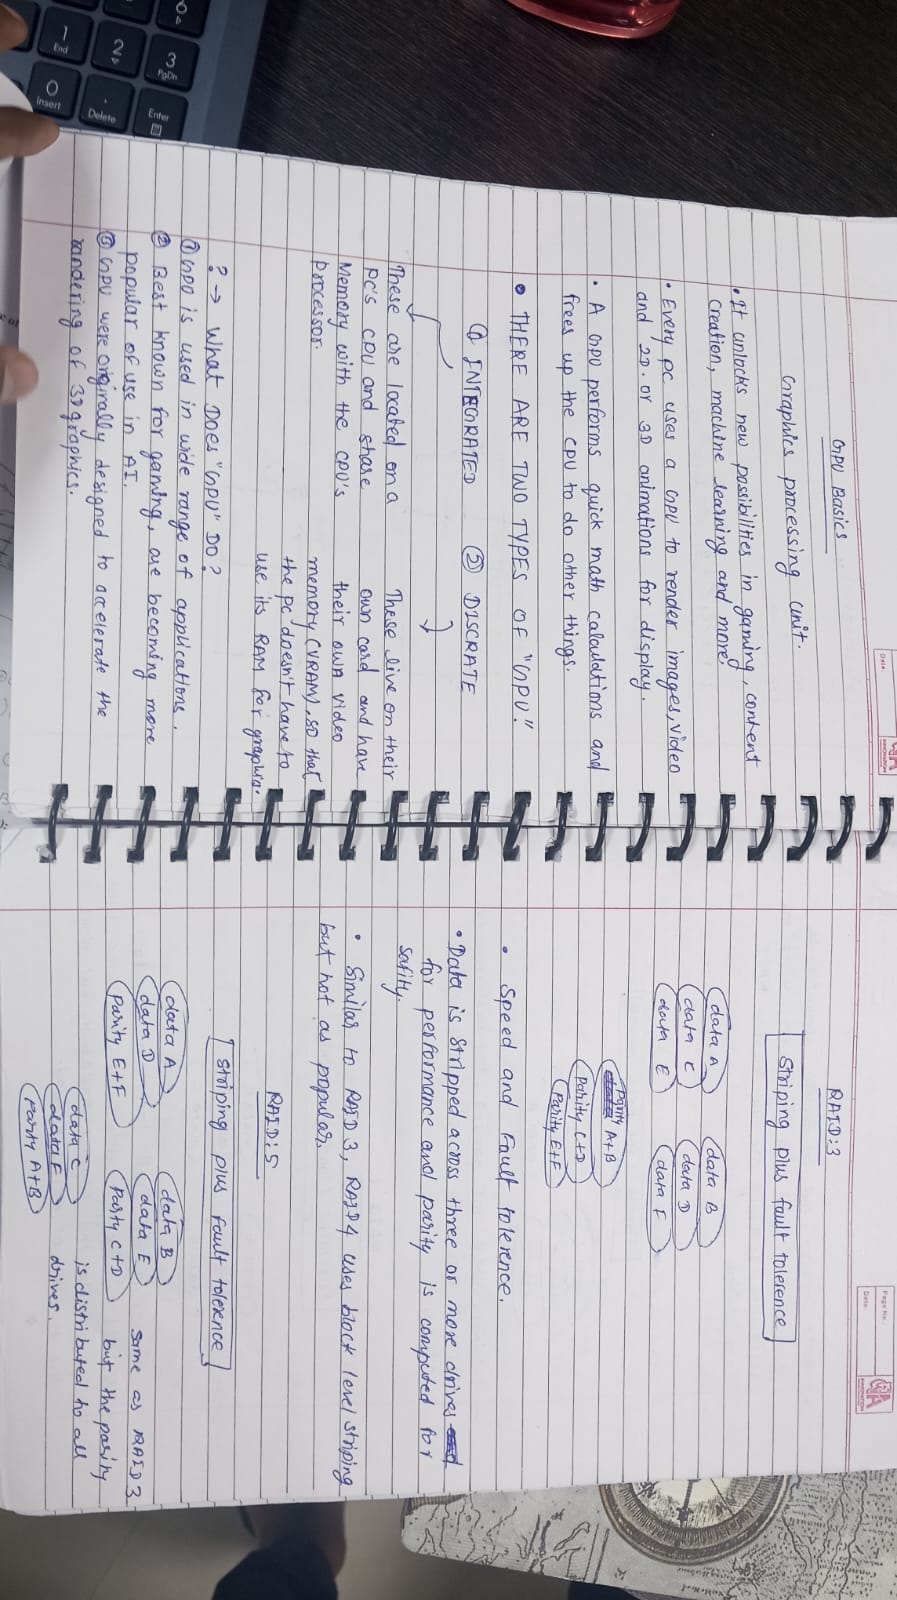 Date
INNOVATION
GPU Basics
Graphics processing unit.
• It unlocks new possibilities in gaming, content
creation, machine learning and more.
• Every pc uses a GPU to render images, video
and 2D. or 3D animations for display.
• A GPU performs quick math calculations and
frees up the CPU to do other things.
• THERE ARE TWO TYPES OF "GPU".
① INTEGRATED ② DISCRATE
These are located on a
PC's CPU and share
Memory with the CPU's
Processor.
These live on their
own card and have
their own video
memory (VRAM), so that
the pc doesn't have to
use its RAM for graphics.
? → What Does "GPU" DO?
① GPU is used in wide range of applications.
② Best known for gaming, are becoming more
popular of use in AI.
③ GPU were originally designed to accelerate the
randering of 3D graphics.
Page No.:
Date:
INNOVATION
RAID:3
Striping plus fault tolerence
data A data B
data C data D
data E data F
Parity A+B
Parity C+D
Parity E+F
• Speed and Fault tolerence.
• Data is stripped across three or more drives
for performance and parity is computed for
safity.
• Similar to RAID 3, RAID 4 uses block level striping
but not as popular.
RAID:5
Striping plus Fault tolerence
data A data B
data D data E
Parity E+F Parity C+D
data C
data F
Parity A+B
same as RAID 3
but the parity
is distributed to all
drives.
3
PgDn
Enter
2
Delete
1
End
0
Insert